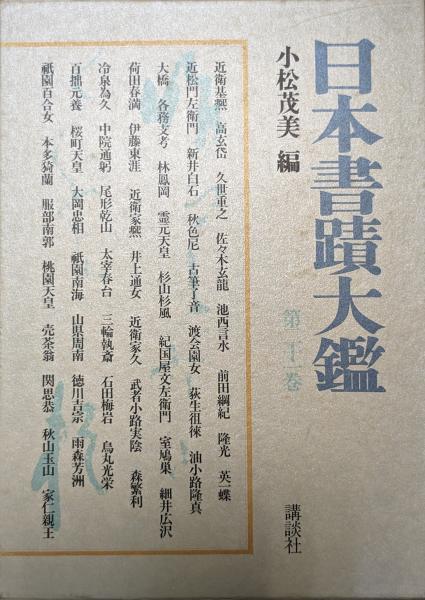 日本書蹟大鑑
第二十一巻
小松茂美 編
近衛基熈 高玄岱 久世重之 佐々木玄龍 池西言水 前田綱紀 隆光 英一蝶
近松門左衛門 新井白石 秋色尼 古筆了音 渡会園女 荻生徂徠 油小路隆真
大橋 各務支考 林鳳岡 霊元天皇 杉山杉風 紀国屋文左衛門 室鳩巣 細井広沢
荷田春満 伊藤東涯 近衛家熈 井上通女 近衛家久 武者小路実陰 森繁利
冷泉為久 中院通躬 尾形乾山 太宰春台 三輪執斎 石田梅岩 烏丸光栄
百拙元養 桜町天皇 大岡忠相 祇園南海 山県周南 徳川吉宗 雨森芳洲
祇園百合女 本多猗蘭 服部南郭 桃園天皇 売茶翁 関思恭 秋山玉山 家仁親王
講談社